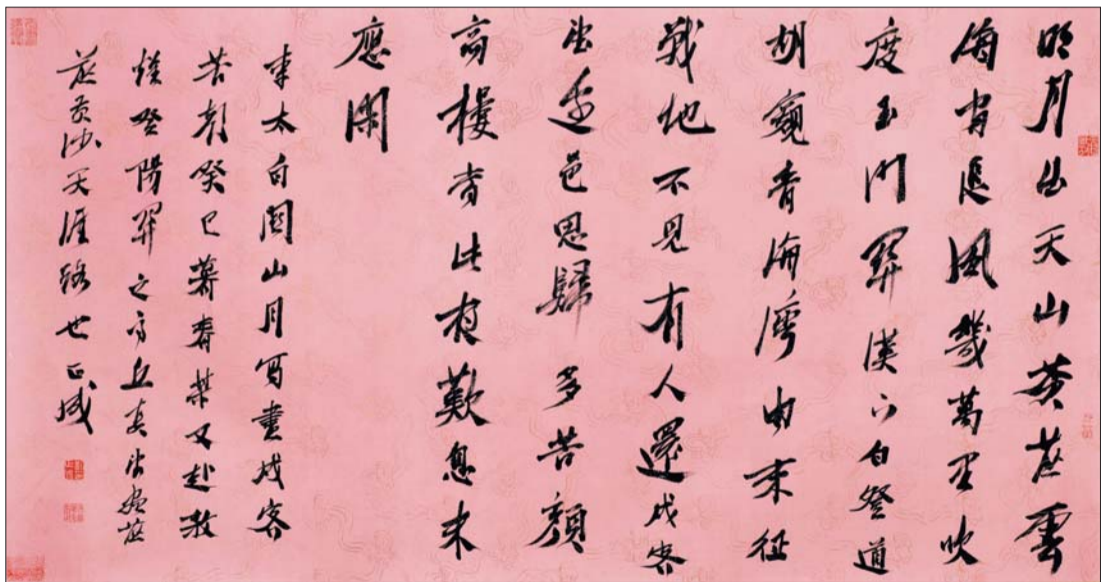 明月出天山蒼茫雲
海間長風幾萬里吹
度玉門關漢下白登道
胡窺青海灣由來征
戰地不見有人還戍客
望邊邑思歸多苦顏
高樓當此夜歎息未
應閑
李太白關山月寫盡戍客
苦癸巳暮春某又赴敦
煌登陽關之高丘真茫
茫黃沙天涯路也正成